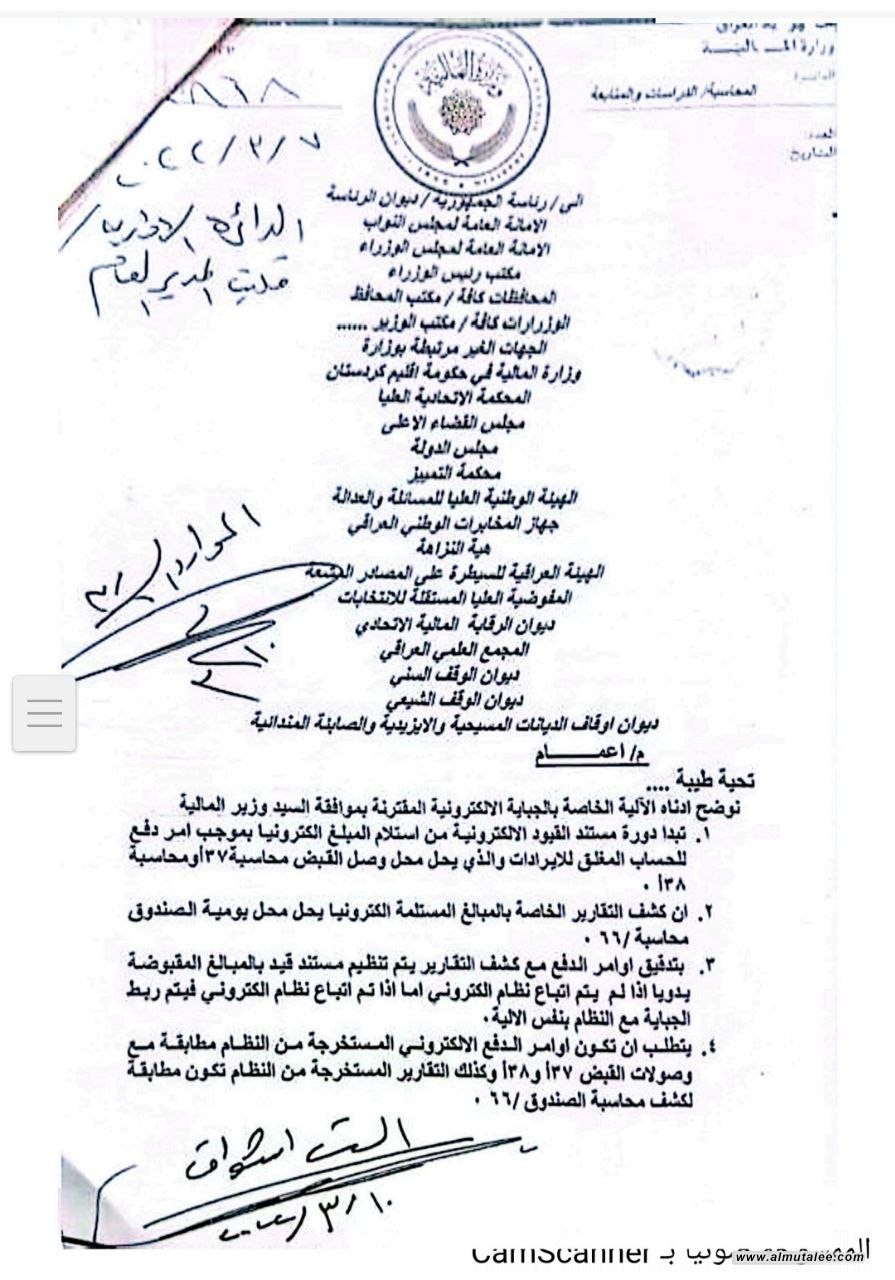 جمهورية العراق
وزارة المـــالـيـــة
الدائرة/
المحاسبة/ الدراسات والمتابعة
العدد:
التاريخ:
وزارة المالية
٢٠٢٢/٣/٧
الدائرة الادارية/
مكتب المدير العام
الى/ رئاسة الجمهورية/ ديوان الرئاسة
الامانة العامة لمجلس النواب
الامانة العامة لمجلس الوزراء
مكتب رئيس الوزراء
المحافظات كافة / مكتب المحافظ
الوزرارات كافة / مكتب الوزير ......
الجهات الغير مرتبطة بوزارة
وزارة المالية في حكومة اقليم كردستان
المحكمة الاتحادية العليا
مجلس القضاء الاعلى
مجلس الدولة
محكمة التمييز
الهيئة الوطنية العليا للمسائلة والعدالة
جهاز المخابرات الوطني العراقي
هية النزاهة
الهيئة العراقية للسيطرة على المصادر المشعة
المفوضية العليا المستقلة للانتخابات
ديوان الرقابة المالية الاتحادي
المجمع العلمي العراقي
ديوان الوقف السني
ديوان الوقف الشيعي
ديوان اوقاف الديانات المسيحية والايزيدية والصابئة المندائية
الموارد
م/ اعمـــــام
تحية طيبة ....
نوضح ادناه الآلية الخاصة بالجباية الالكترونية المقترنة بموافقة السيد وزير المالية
١. تبدا دورة مستند القيود الالكترونية من استلام المبلغ الكترونيا بموجب امر دفع
للحساب المغلق للايرادات والذي يحل محل وصل القبض محاسبة٣٧أومحاسبة
٣٨أ .
٢. ان كشف التقارير الخاصة بالمبالغ المستلمة الكترونيا يحل محل يومية الصندوق
محاسبة /٦٦ .
٣. بتدقيق اوامر الدفع مع كشف التقارير يتم تنظيم مستند قيد بالمبالغ المقبوضة
يدويا اذا لم يتم اتباع نظام الكتروني اما اذا تم اتباع نظام الكتروني فيتم ربط
الجباية مع النظام بنفس الالية.
٤. يتطلب ان تكون اوامر الدفع الالكتروني المستخرجة من النظام مطابقة مع
وصولات القبض ٣٧أ و٣٨أ وكذلك التقارير المستخرجة من النظام تكون مطابقة
لكشف محاسبة الصندوق /٦٦ .
الست اشواق
٢٠٢٢/٣/١٠
الممسوحة ضوئيا بـ CamScanner
www.almutalee.com